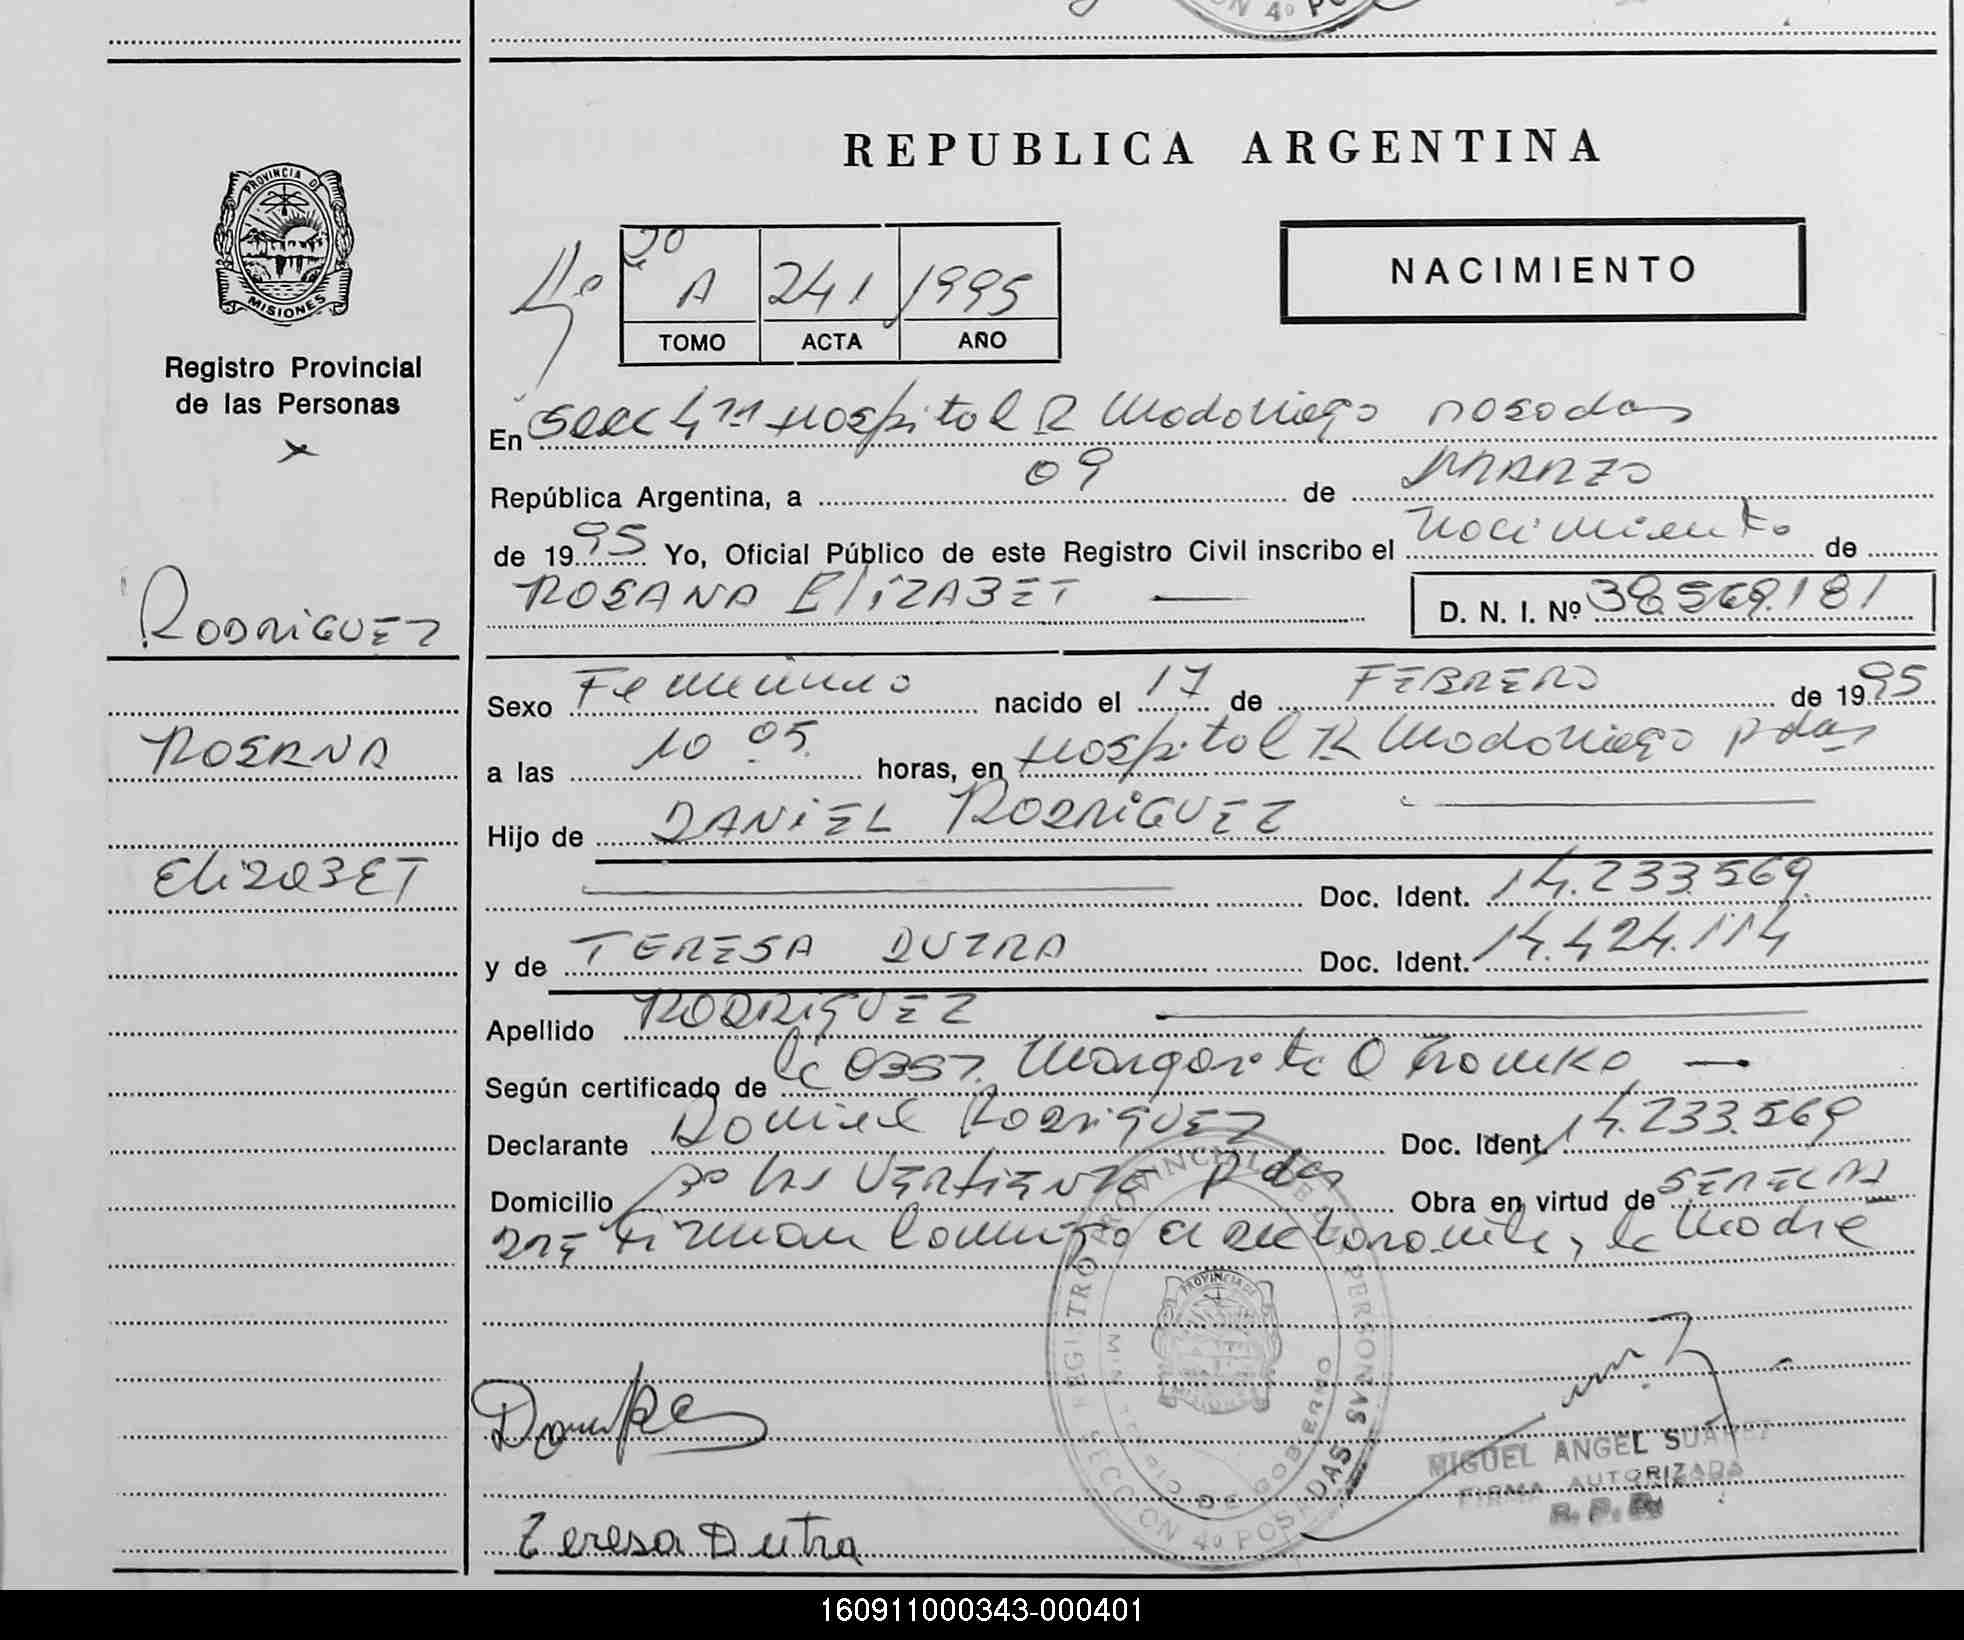 REPUBLICA ARGENTINA
PROVINCIA DE
MISIONES
Registro Provincial
de las Personas
4º
2º
A 241 1995
TOMO ACTA AÑO
NACIMIENTO
En Secc 4ta Hospital R Madariaga Posadas
República Argentina, a 09 de MARZO
de 1995 Yo, Oficial Público de este Registro Civil inscribo el nacimiento de
ROSANA ElizABET D. N. I. Nº 38.569.181
RODRiGUEZ
ROSANA
ElizABET
Sexo Femenino nacido el 17 de FEBRERO de 1995
a las 10 05 horas, en Hospital R Madariaga Pdas
Hijo de DANiEL RODRiGUEZ
Doc. Ident. 14.233.569
y de TERESA DUTRA Doc. Ident. 14.424.114
Apellido RODRiGUEZ
Según certificado de la obst. Margarita
Declarante Daniel RODRiGUEZ Doc. Ident. 14.233.569
Domicilio Bº LAS VERTIENTE Pdas Obra en virtud de SER EL PA
DRE Firman conmigo el declarante y la Madre
REGISTRO PROVINCIAL DE LAS PERSONAS
MINISTERIO DE GOBIERNO
PROVINCIA DE
MISIONES
SECCION 4º POSADAS
MIGUEL ANGEL SUAREZ
FIRMA AUTORIZADA
R. P. P.
Teresa Dutra
160911000343-000401